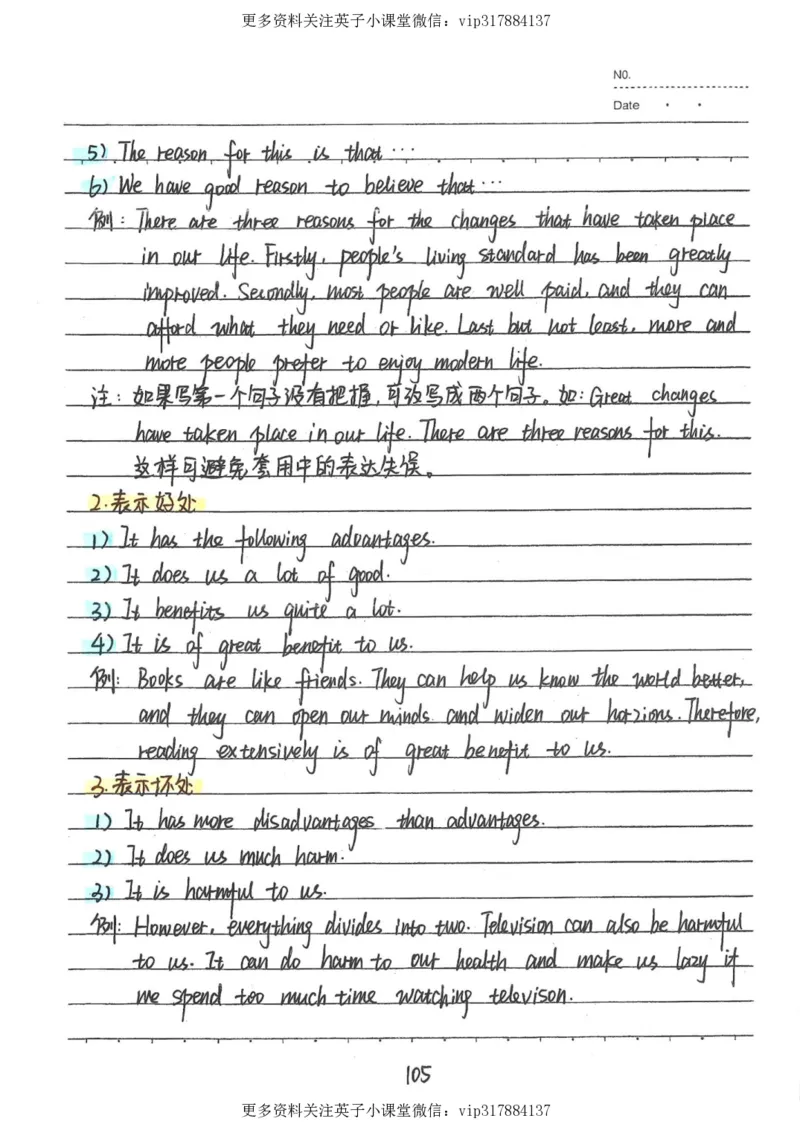 更多资料关注英子小课堂微信：vip317884137
NO.
Date · ·
5) The reason for this is that …
6) We have good reason to believe that …
例: There are three reasons for the changes that have taken place
in our life. Firstly, people's living standard has been greatly
improved. Secondly, most people are well paid, and they can
afford what they need or like. Last but not least, more and
more people prefer to enjoy modern life.
注: 如果写第一个句子没有把握,可改写成两个句子。如: Great changes
have taken place in our life. There are three reasons for this.
这样可避免套用中的表达失误。
2.表示好处
1) It has the following advantages.
2) It does us a lot of good.
3) It benefits us quite a lot.
4) It is of great benefit to us.
例: Books are like friends. They can help us know the world better,
and they can open our minds and widen our horzions. Therefore,
reading extensively is of great benefit to us.
3.表示坏处
1) It has more disadvantages than advantages.
2) It does us much harm.
3) It is harmful to us.
例: However, everything divides into two. Television can also be harmful
to us. It can do harm to our health and make us lazy if
we spend too much time watching televison.
105
更多资料关注英子小课堂微信：vip317884137